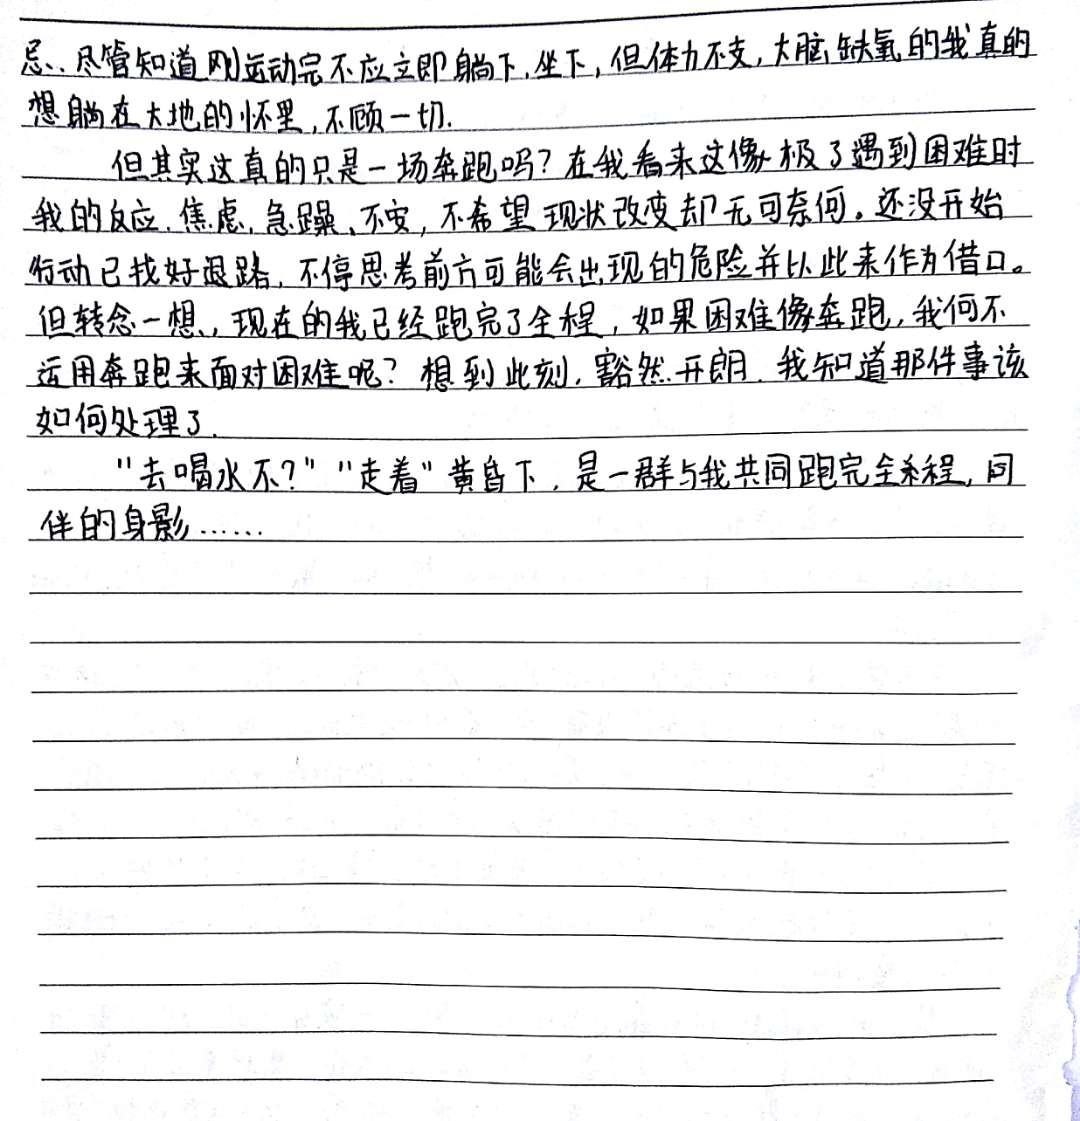 忌.. 尽管知道刚运动完不应立即躺下,坐下,但体力不支,大脑缺氧的我真的
想躺在大地的怀里,不顾一切.
但其实这真的只是一场奔跑吗?在我看来这像极了遇到困难时
我的反应.焦虑,急躁、不安,不希望现状改变却无可奈何。还没开始
行动已找好退路,不停思考前方可能会出现的危险并以此来作为借口。
但转念一想,,现在的我已经跑完了全程,如果困难像奔跑,我何不
运用奔跑来面对困难呢?想到此刻,豁然开朗.我知道那件事该
如何处理了.
"去喝水不?""走着"黄昏下,是一群与我共同跑完全程,同
伴的身影……